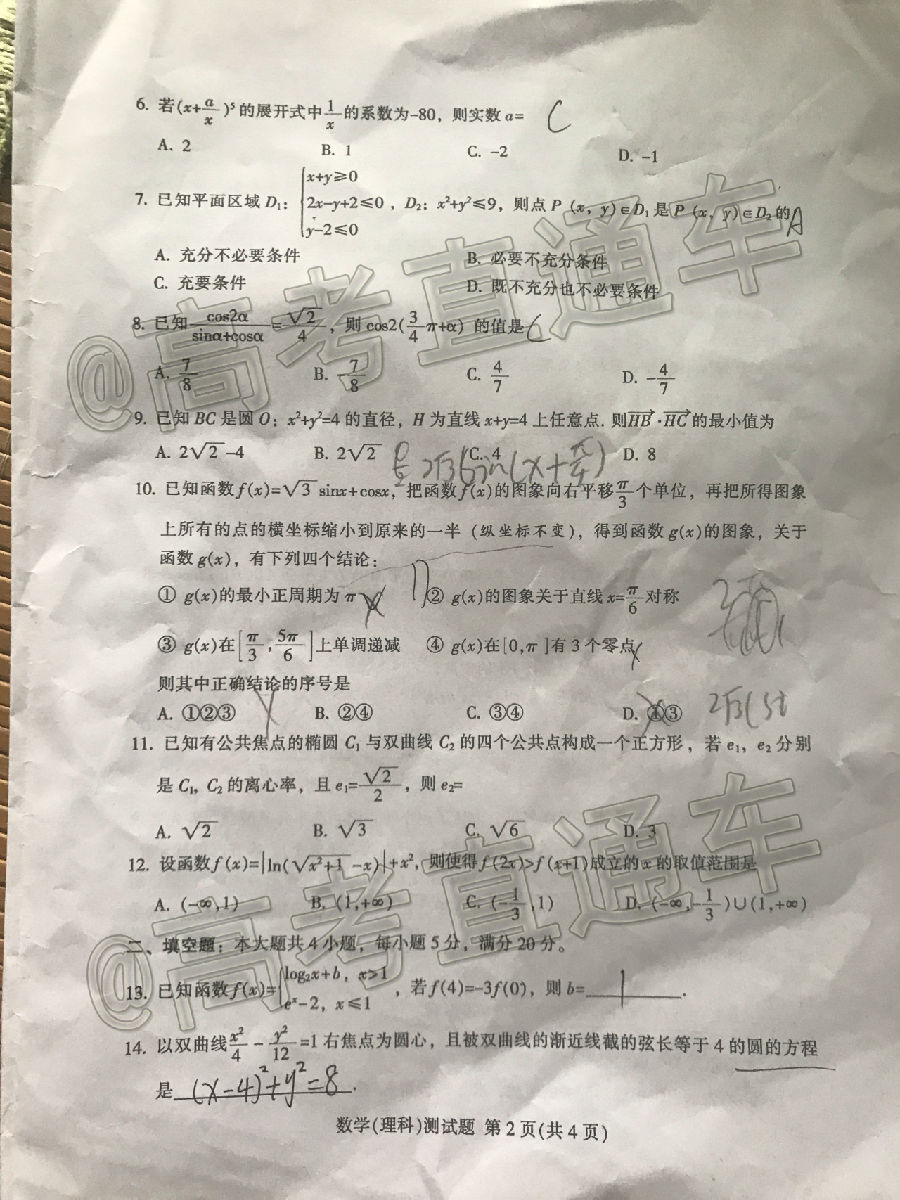 6. 若(x+a/x)⁵的展开式中1/x的系数为-80，则实数a= C
A. 2 B. 1 C. -2 D. -1
7. 已知平面区域 D₁：{x+y≥0, 2x-y+2≤0, y-2≤0，D₂：x²+y²≤9，则点P（x，y）∈D₁是P（x，y）∈D₂的 A
A. 充分不必要条件 B. 必要不充分条件
C. 充要条件 D. 既不充分也不必要条件
8. 已知 cos2α/(sinα+cosα)=√2/4，则 cos2(3/4 π+α) 的值是 C
A. 7/8 B. -7/8 C. 4/7 D. -4/7
9. 已知 BC 是圆 O：x²+y²=4 的直径，H 为直线 x+y=4 上任意点. 则HB·HC的最小值为
A. 2√2-4 B. 2√2 C. 4 D. 8
10. 已知函数f(x)=√3 sinx+cosx，把函数f(x)的图象向右平移π/3个单位，再把所得图象
上所有的点的横坐标缩小到原来的一半（纵坐标不变），得到函数g(x)的图象，关于
函数g(x)，有下列四个结论：
① g(x)的最小正周期为π ② g(x)的图象关于直线x=π/6对称
③ g(x)在[π/3,5π/6]上单调递减 ④ g(x)在[0,π]有3个零点
则其中正确结论的序号是
A. ①②③ B. ②④ C. ③④ D. ①③
11. 已知有公共焦点的椭圆 C₁ 与双曲线 C₂ 的四个公共点构成一个正方形，若 e₁，e₂ 分别
是 C₁，C₂ 的离心率，且 e₁=√2/2，则 e₂=
A. √2 B. √3 C. √6 D. 3
12. 设函数f(x)=|ln(√(x²+1)-x)|+x²，则使得f(2x)>f(x+1)成立的x的取值范围是
A. (-∞,1) B. (1,+∞) C. (-1/3,1) D. (-∞,-1/3)∪(1,+∞)
二、填空题：本大题共4小题，每小题5分，满分20分。
13. 已知函数f(x)={log₂x+b，x>1, eˣ-2，x≤1，若f(4)=-3f(0)，则b= 1 .
14. 以双曲线x²/4-y²/12=1右焦点为圆心，且被双曲线的渐近线截的弦长等于4的圆的方程
是 (x-4)²+y²=8 .
数学(理科)测试题 第2页(共4页)
@高考直通车
@高考直通车